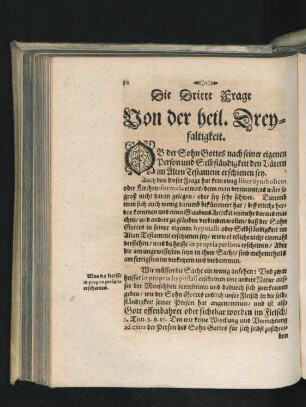 10
Die Dritte Frage
Von der heil. Drey-
faltigkeit.
OB der Sohn Gottes nach seiner eigenen
Person und Selbständigkeit den Vätern
im Alten Testament erschienen sey.
Auch von dieser Frage hat kein einig liber Symbolicus
oder Kirchen-formula etwas/ denn man vermeinet/ es wäre so
groß nicht daran gelegen/ oder sey sehr schwer. Darumb
man sich gar wenig darumb bekümmert hat/
kommen und einen Glaubens Artikel daraus machen/
und andere zu glauben verbinden wollen/ daß der Sohn
Gottes in seiner eigenen hypostasi oder Selbständigkeit im
Alten Testament erschienen sey/ wenn sie
verstehen/ was da heisse in propria persona erscheinen/ Aber
die am ungewissesten seyn in ihrer Sache/ sind mehrentheils
am fertigsten im verketzern und verdammen.
Wir müssen die Sache ein wenig ansehen: Und zwar
heisset in propria hypostasi erscheinen eine andere Natur ausser
der Menschheit annehmen und dadurch sich zuerkennen
geben/ wie der Sohn Gottes endlich unser Fleisch in die selb-
ständigkeit seiner Person hat angenommen/ und ist also
Gott offenbahret oder sichtbar worden im Fleisch/
1. Tim. 3. v. 16. Denn wie keine Würckung und Verrichtung
ad extra der Person des Sohns Gottes für sich selbst zugeschrie-
ben
Was da heisse
in propria persona
erscheinen.